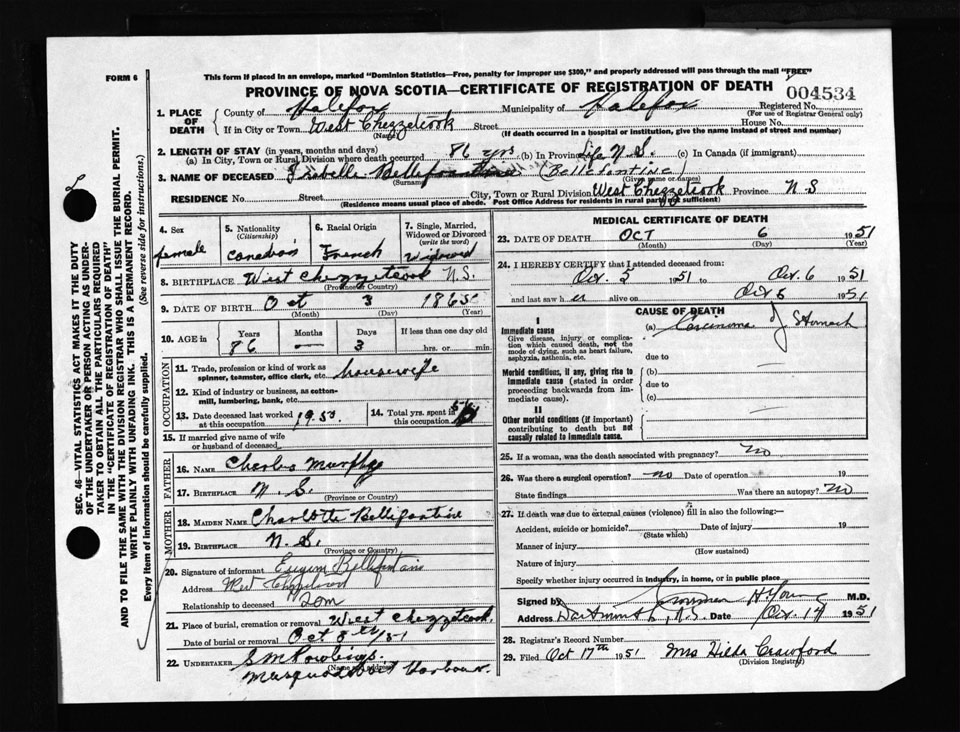 FORM 6
This form if placed in an envelope, marked "Dominion Statistics—Free, penalty for improper use $300," and properly addressed will pass through the mail "FREE"
PROVINCE OF NOVA SCOTIA—CERTIFICATE OF REGISTRATION OF DEATH
004534
1. PLACE OF DEATH
County of Halefox Municipality of Halefox Registered No.
(For use of Registrar General only)
If in City or Town West Chezzetcook Street House No.
(Name) (If death occurred in a hospital or institution, give the name instead of street and number)
2. LENGTH OF STAY (in years, months and days)
(a) In City, Town or Rural Division where death occurred 86 yrs (b) In Province Life N S (c) In Canada (if immigrant)
3. NAME OF DECEASED Isabelle Bellefontine (Bellefontine)
(Surname) (Given name or names)
RESIDENCE No. Street City, Town or Rural Division West Chezzetcook Province N S
(Residence means usual place of abode. Post Office Address for residents in rural parts not sufficient)
4. Sex
female
5. Nationality (Citizenship)
Canadian
6. Racial Origin
French
7. Single, Married, Widowed or Divorced (write the word)
Widowed
8. BIRTHPLACE West Chezzetcook N.S.
(Province or Country)
9. DATE OF BIRTH Oct 3 1865
(Month) (Day) (Year)
10. AGE in Years Months Days If less than one day old
86 — 3 hrs. or min.
OCCUPATION
11. Trade, profession or kind of work as spinner, teamster, office clerk, etc. housewife
12. Kind of industry or business, as cotton-mill, lumbering, bank, etc.
13. Date deceased last worked at this occupation 1950
14. Total yrs. spent in this occupation
15. If married give name of wife or husband of deceased
FATHER
16. NAME Charles Murphy
17. BIRTHPLACE N. S.
(Province or Country)
MOTHER
18. MAIDEN NAME Charlotte Bellefontine
19. BIRTHPLACE N. S.
(Province or Country)
20. Signature of informant Bellefontaine
Address West Chezzetcook
Relationship to deceased Son
21. Place of burial, cremation or removal West Chezzetcook
Date of burial or removal Oct 8th/51
22. UNDERTAKER S M Rowlings.
(Name and address)
Musquodoboit Harbour.
MEDICAL CERTIFICATE OF DEATH
23. DATE OF DEATH OCT 6 1951
(Month) (Day) (Year)
24. I HEREBY CERTIFY that I attended deceased from:
Oct. 5 1951 to Oct. 6 1951
and last saw h er alive on Oct 5 1951
CAUSE OF DEATH
I
Immediate cause
Give disease, injury or complication which caused death, not the mode of dying, such as heart failure, asphyxia, asthenia, etc.
(a) Carcinoma of Stomach
due to
Morbid conditions, if any, giving rise to immediate cause (stated in order proceeding backwards from immediate cause).
(b)
due to
(c)
II
Other morbid conditions (if important) contributing to death but not causally related to immediate cause.
25. If a woman, was the death associated with pregnancy? no
26. Was there a surgical operation? no Date of operation 19
State findings Was there an autopsy? no
27. If death was due to external causes (violence) fill in also the following:—
Accident, suicide or homicide? Date of injury 19
(State which)
Manner of injury
(How sustained)
Nature of injury
Specify whether injury occurred in industry, in home, or in public place
Signed by H Young M.D.
Address Dartmouth, N.S. Date Oct. 17 1951
28. Registrar's Record Number
29. Filed Oct 17th 1951 Mrs Hilda Crawford
(Division Registrar)
SEC. 46—VITAL STATISTICS ACT MAKES IT THE DUTY
OF THE UNDERTAKER OR PERSON ACTING AS UNDER-
TAKER TO OBTAIN ALL THE PARTICULARS REQUIRED
IN THE "CERTIFICATE OF REGISTRATION OF DEATH"
AND TO FILE THE SAME WITH THE DIVISION REGISTRAR WHO SHALL ISSUE THE BURIAL PERMIT.
WRITE PLAINLY WITH UNFADING INK. THIS IS A PERMANENT RECORD.
Every item of information should be carefully supplied. (See reverse side for instructions.)